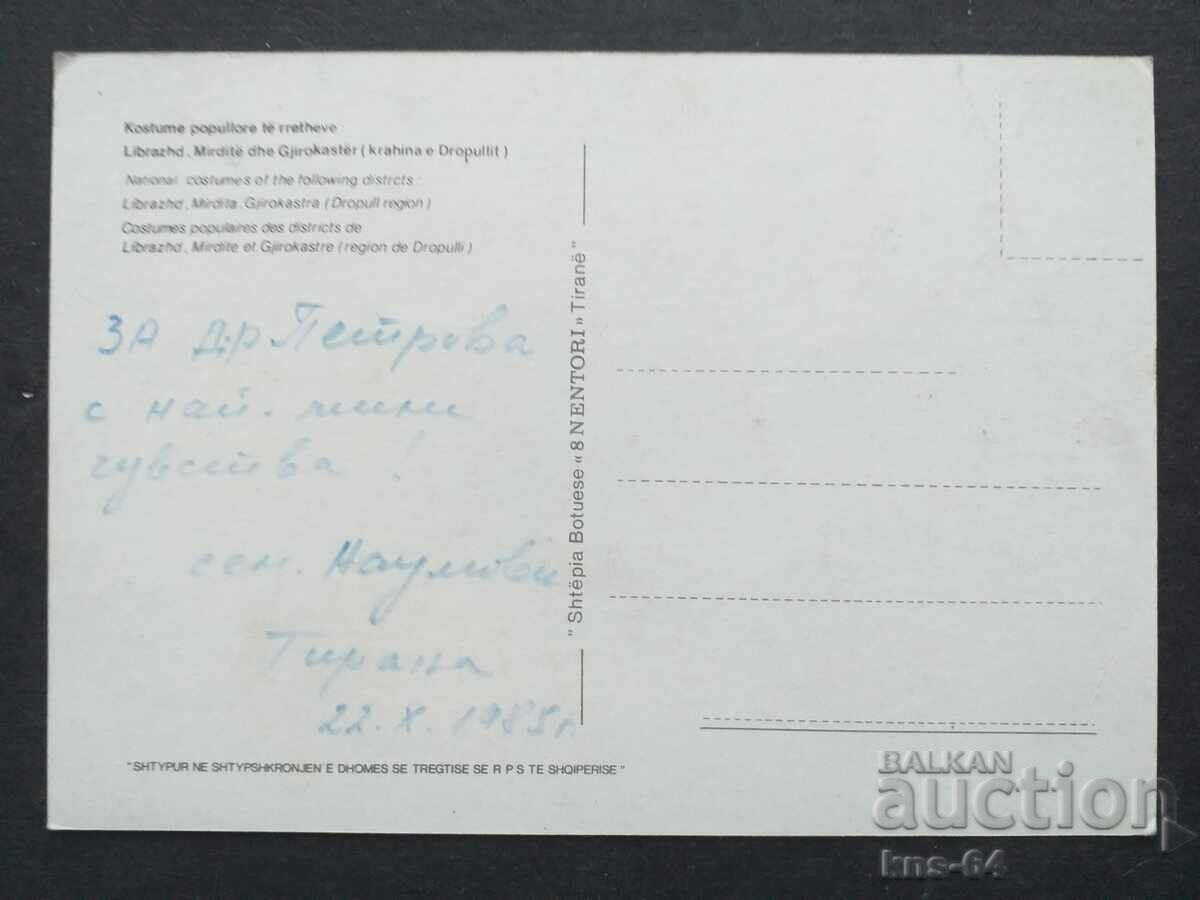 Kostume popullore të rretheve
Librazhd, Mirditë dhe Gjirokastër ( krahina e Dropullit )
National costumes of the following distrcts :
Librazhd, Mirdita, Gjirokastra ( Dropull region )
Costumes populaires des districts de
Librazhd, Mirdite et Gjirokastre ( region de Dropulli )
ЗА Д-р Петрова
с най-мили
чувства !
сем. Наумови
Тирана
22.X.1985г.
"SHTYPUR NE SHTYPSHKRONJEN E DHOMES SE TREGTISE SE R P S TE SHQIPERISE "
" Shtëpia Botuese « 8 NENTORI » Tiranë "
BALKAN
auction
kns-64